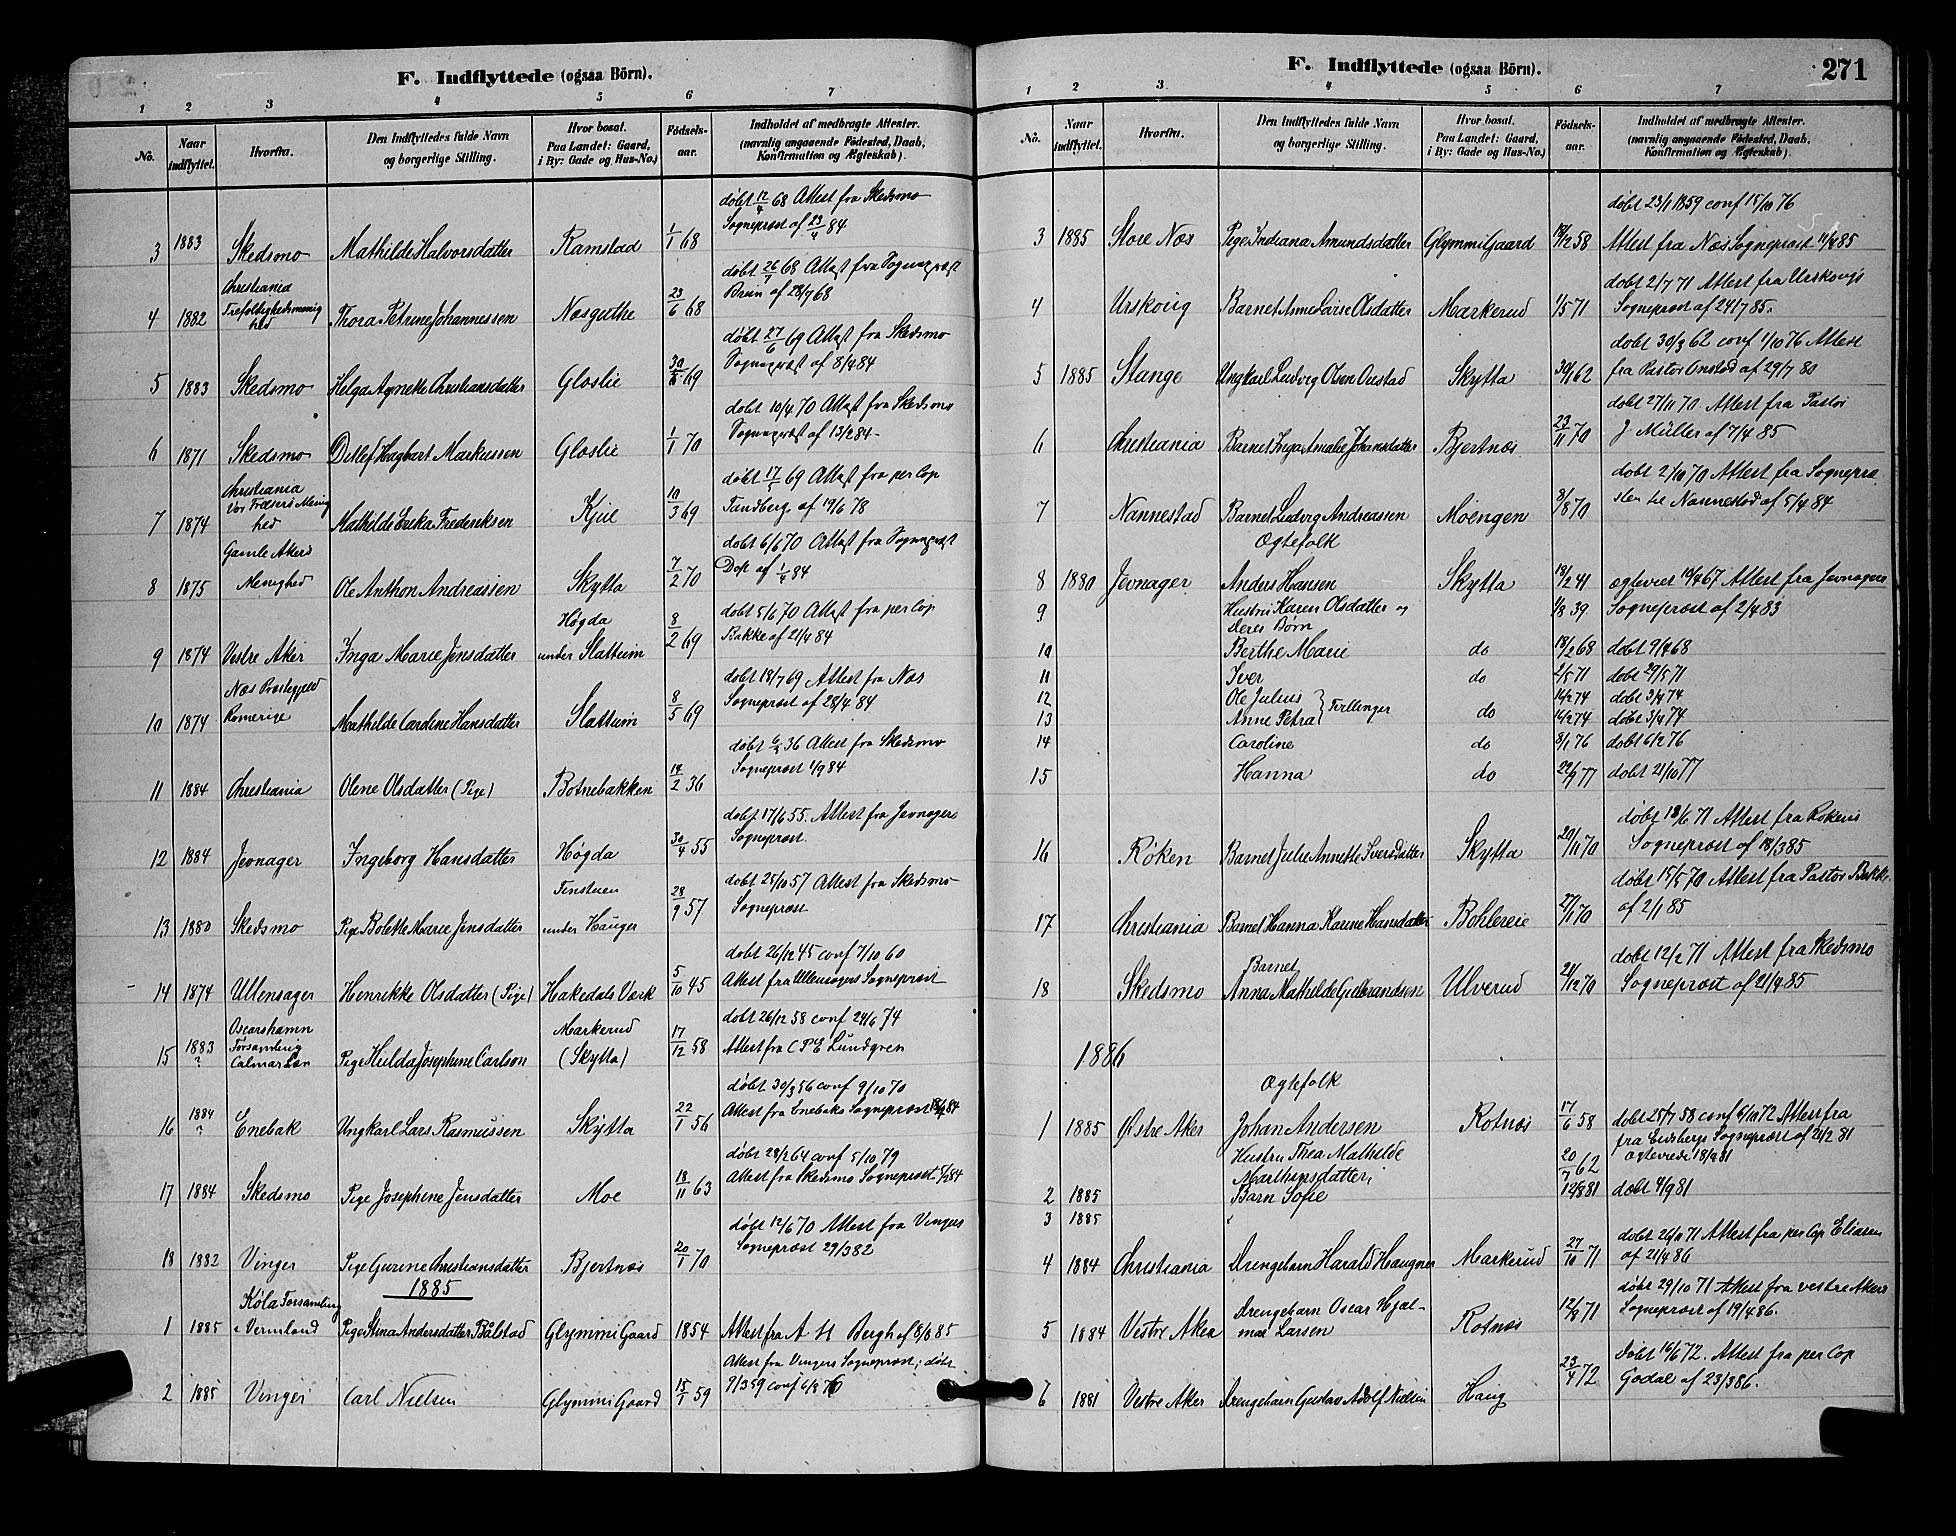 F. Indflyttede (ogsaa Börn).
1 2 3 4 5 6 7
No. Naar indflyttet. Hvorfra. Den Indflyttedes fulde Navn og borgerlige Stilling. Hvor bosat. Paa Landet: Gaard, i By: Gade og Hus-No.) Fødsels-aar. Indholdet af medbragte Attester. (navnlig angaaende Fødested, Daab, Konfirmation og Ægteskab).
3 1883 Skedsmo Mathilde Halvorsdatter Ramstad 1/1 68 døbt 12/4 68 Attest fra Skedsmo Sogneprest af 23/4 84
4 1882 Christiania Trefoldighedsmenighed Thora Petrine Johannessen Næsgathe 23/6 68 døbt 26/7 68 Attest fra Sogneprest Bruun af 28/7 68
5 1883 Skedsmo Helga Agnethe Christiansdatter Gløslie 69 døbt 27/6 69 Attest fra Skedsmo Sogneprest af 8/4 84
6 1871 Skedsmo Detlef Hagbart Markussen Gløslie 1/1 70 døbt 10/4 70 Attest fra Skedsmo Sogneprest af 13/2 84
7 1874 Christiania Vor Frelsers Menighed Mathilde Erika Frederiksen Kjul 10/3 69 døbt 17/5 69 Attest fra per Cop Tandberg af 19/6 78
8 1875 Gamle Akers Menighed Ole Anthon Andreassen Skytta 7/2 70 døbt 6/6 70 Attest fra Sogneprest Dop af 1/4 84
9 1874 Vestre Aker Inga Marie Jensdatter Høgda under Slattum 8/2 69 døbt 5/6 70 Attest fra per Cop Bakke af 21/4 84
10 1874 Næs Prestegjeld Romerige Mathilde Caroline Hansdatter Slattum 8/5 69 døbt 18/7 69 Attest fra Næs Sogneprest af 28/4 84
11 1884 Christiania Olene Olsdatter (Pige) Botnebakken 14/2 36 døbt 6/3 36 Attest fra Skedsmo Sogneprest 4/9 84
12 1884 Jevnager Ingeborg Hansdatter Høgda 30/4 55 døbt 17/6 55. Attest fra Jevnagers Sogneprest.
13 1880 Skedsmo Pige Bolette Marie Jensdatter Tenstuen under Hauger 28/9 57 døbt 25/10 57 Attest fra Skedsmo Sogneprest
14 1874 Ullensager Henrikke Olsdatter (Pige) Hakedals Værk 5/10 45 døbt 26/12 45 conf 7/10 60 Attest fra Ullensagers Sogneprest
15 1883 ? Oscarshamn Forsamling Calmar Læn Pige Hulda Josephine Carlson Markerud (Skytta) 17/12 58 døbt 26/12 58 conf 24/6 74 Attest fra C P E Lundgren
16 1884 ? Enebak Ungkarl Lars Rasmussen Skytta 22/1 56 døbt 30/3 56 conf 9/10 70 Attest fra Enebaks Sogneprest 84
17 1884 Skedsmo Pige Josephine Jensdatter Moe 18/11 63 døbt 28/2 64 conf 5/10 79 Attest fra Skedsmo Sogneprest 84
18 1882 Vinger Pige Gurine Christiansdatter Bjertnæs 20/1 70 døbt 12/6 70 Attest fra Vingers Sogneprest 29/3 82
1885
1 1885 Køla Forsamling i Vermland Pige Stina Andersdatter Bålstad Glymmi Gaard 1854 Attest fra A H Bergh af 8/8 85
2 1885 Vinger Carl Nielsen Glymmi Gaard 15/1 59 Attest fra Vingers Sogneprest; døbt 9/3 59 conf 6/8 76
F. Indflyttede (ogsaa Börn). 271
1 2 3 4 5 6 7
No. Naar indflyttet. Hvorfra. Den Indflyttedes fulde Navn og borgerlige Stilling. Hvor bosat. Paa Landet: Gaard, i By: Gade og Hus-No.) Fødsels-aar. Indholdet af medbragte Attester. (navnlig angaaende Fødested, Daab, Konfirmation og Ægteskab).
3 1885 Store Næs Pige Indiana Amundsdatter Glymmi Gaard 58 døbt 23/1 1859 conf 15/10 76 Attest fra Næs Sogneprest 11/4 85
4 Urskoug Barnet Anne Laise Olsdatter Markerud 1/5 71 døbt 2/7 71 Attest fra Urskougs Sogneprest af 24/7 85.
5 1885 Stange Ungkarl Ludvig Olsen Onstad Skytta 30/1 62 døbt 30/3 62 conf 1/10 76 Attest fra Pastor Onstad af 29/7 80
6 Christiania Barnet Inga Amalie Johansdatter Bjertnæs 23/11 70 døbt 27/11 70 Attest fra Pastor J Müller af 7/4 85
7 Nannestad Barnet Ludvig Andreassen Moengen 8/8 70 døbt 2/10 70 Attest fra Sognepresten til Nannestad af 5/4 84
Ægtefolk
8 1880 Jevnager Anders Hansen Skytta 18/2 41 ægteviet 19/4 67 Attest fra Jevnagers
9 Hustru Karen Olsdatter og 1/8 39 Sogneprest af 2/4 83
Deres Børn
10 Berthe Marie do 18/2 68 døbt 9/4 68
11 Iver do 2/5 71 døbt 29/5 71
12 Ole Julius } Tvillinger 14/2 74 døbt 3/4 74
13 Anne Petra do 14/2 74 døbt 3/4 74
14 Caroline do 8/1 76 døbt 6/2 76
15 Hanna do 22/9 77 døbt 21/10 77
16 Røken Barnet Julie Annette Iversdatter Skytta 20/11 70 døbt 18/6 71 Attest fra Røkens Sogneprest af 18/3 85
17 Christiania Barnet Hanna Karine Hansdatter Bohlereie 27/1 70 døbt 15/5 70 Attest fra Pastor Bakke af 2/1 85
18 Skedsmo Barnet Anna Mathilde Gulbrandsen Ulverud 21/12 70 døbt 12/2 71 Attest fra Skedsmo Sogneprest af 21/4 85
1886
Ægtefolk
1 1885 Østre Aker Johan Andersen Rotnæs 17/6 58 døbt 25/7 58 conf 6/10 72 Attest fra fra Eidsbergs Sogneprest af 21/2 81
Hustru Thea Mathilde Marthinsdatter; 20/7 62 Ægteviede 18/9 81
2 1885 Barn Sofie 12/8 81 døbt 4/9 81
3 1885
4 1884 Christiania Drengebarn Harald Haugner Markerud 27/10 71 døbt 26/11 71 Attest fra per Cop Eliasen af 21/4 86
5 1884 Vestre Aker Drengebarn Oscar Hjalmar Larsen Rotnæs 12/9 71 døbt 29/10 71 Attest fra vestre Akers Sogneprest af 19/4 86.
6 1881 Vestre Aker Drengebarn Gustav Adolf Nielsen Haug 23/4 72 Døbt 16/6 72. Attest fra per Cop Godal af 23/3 86.